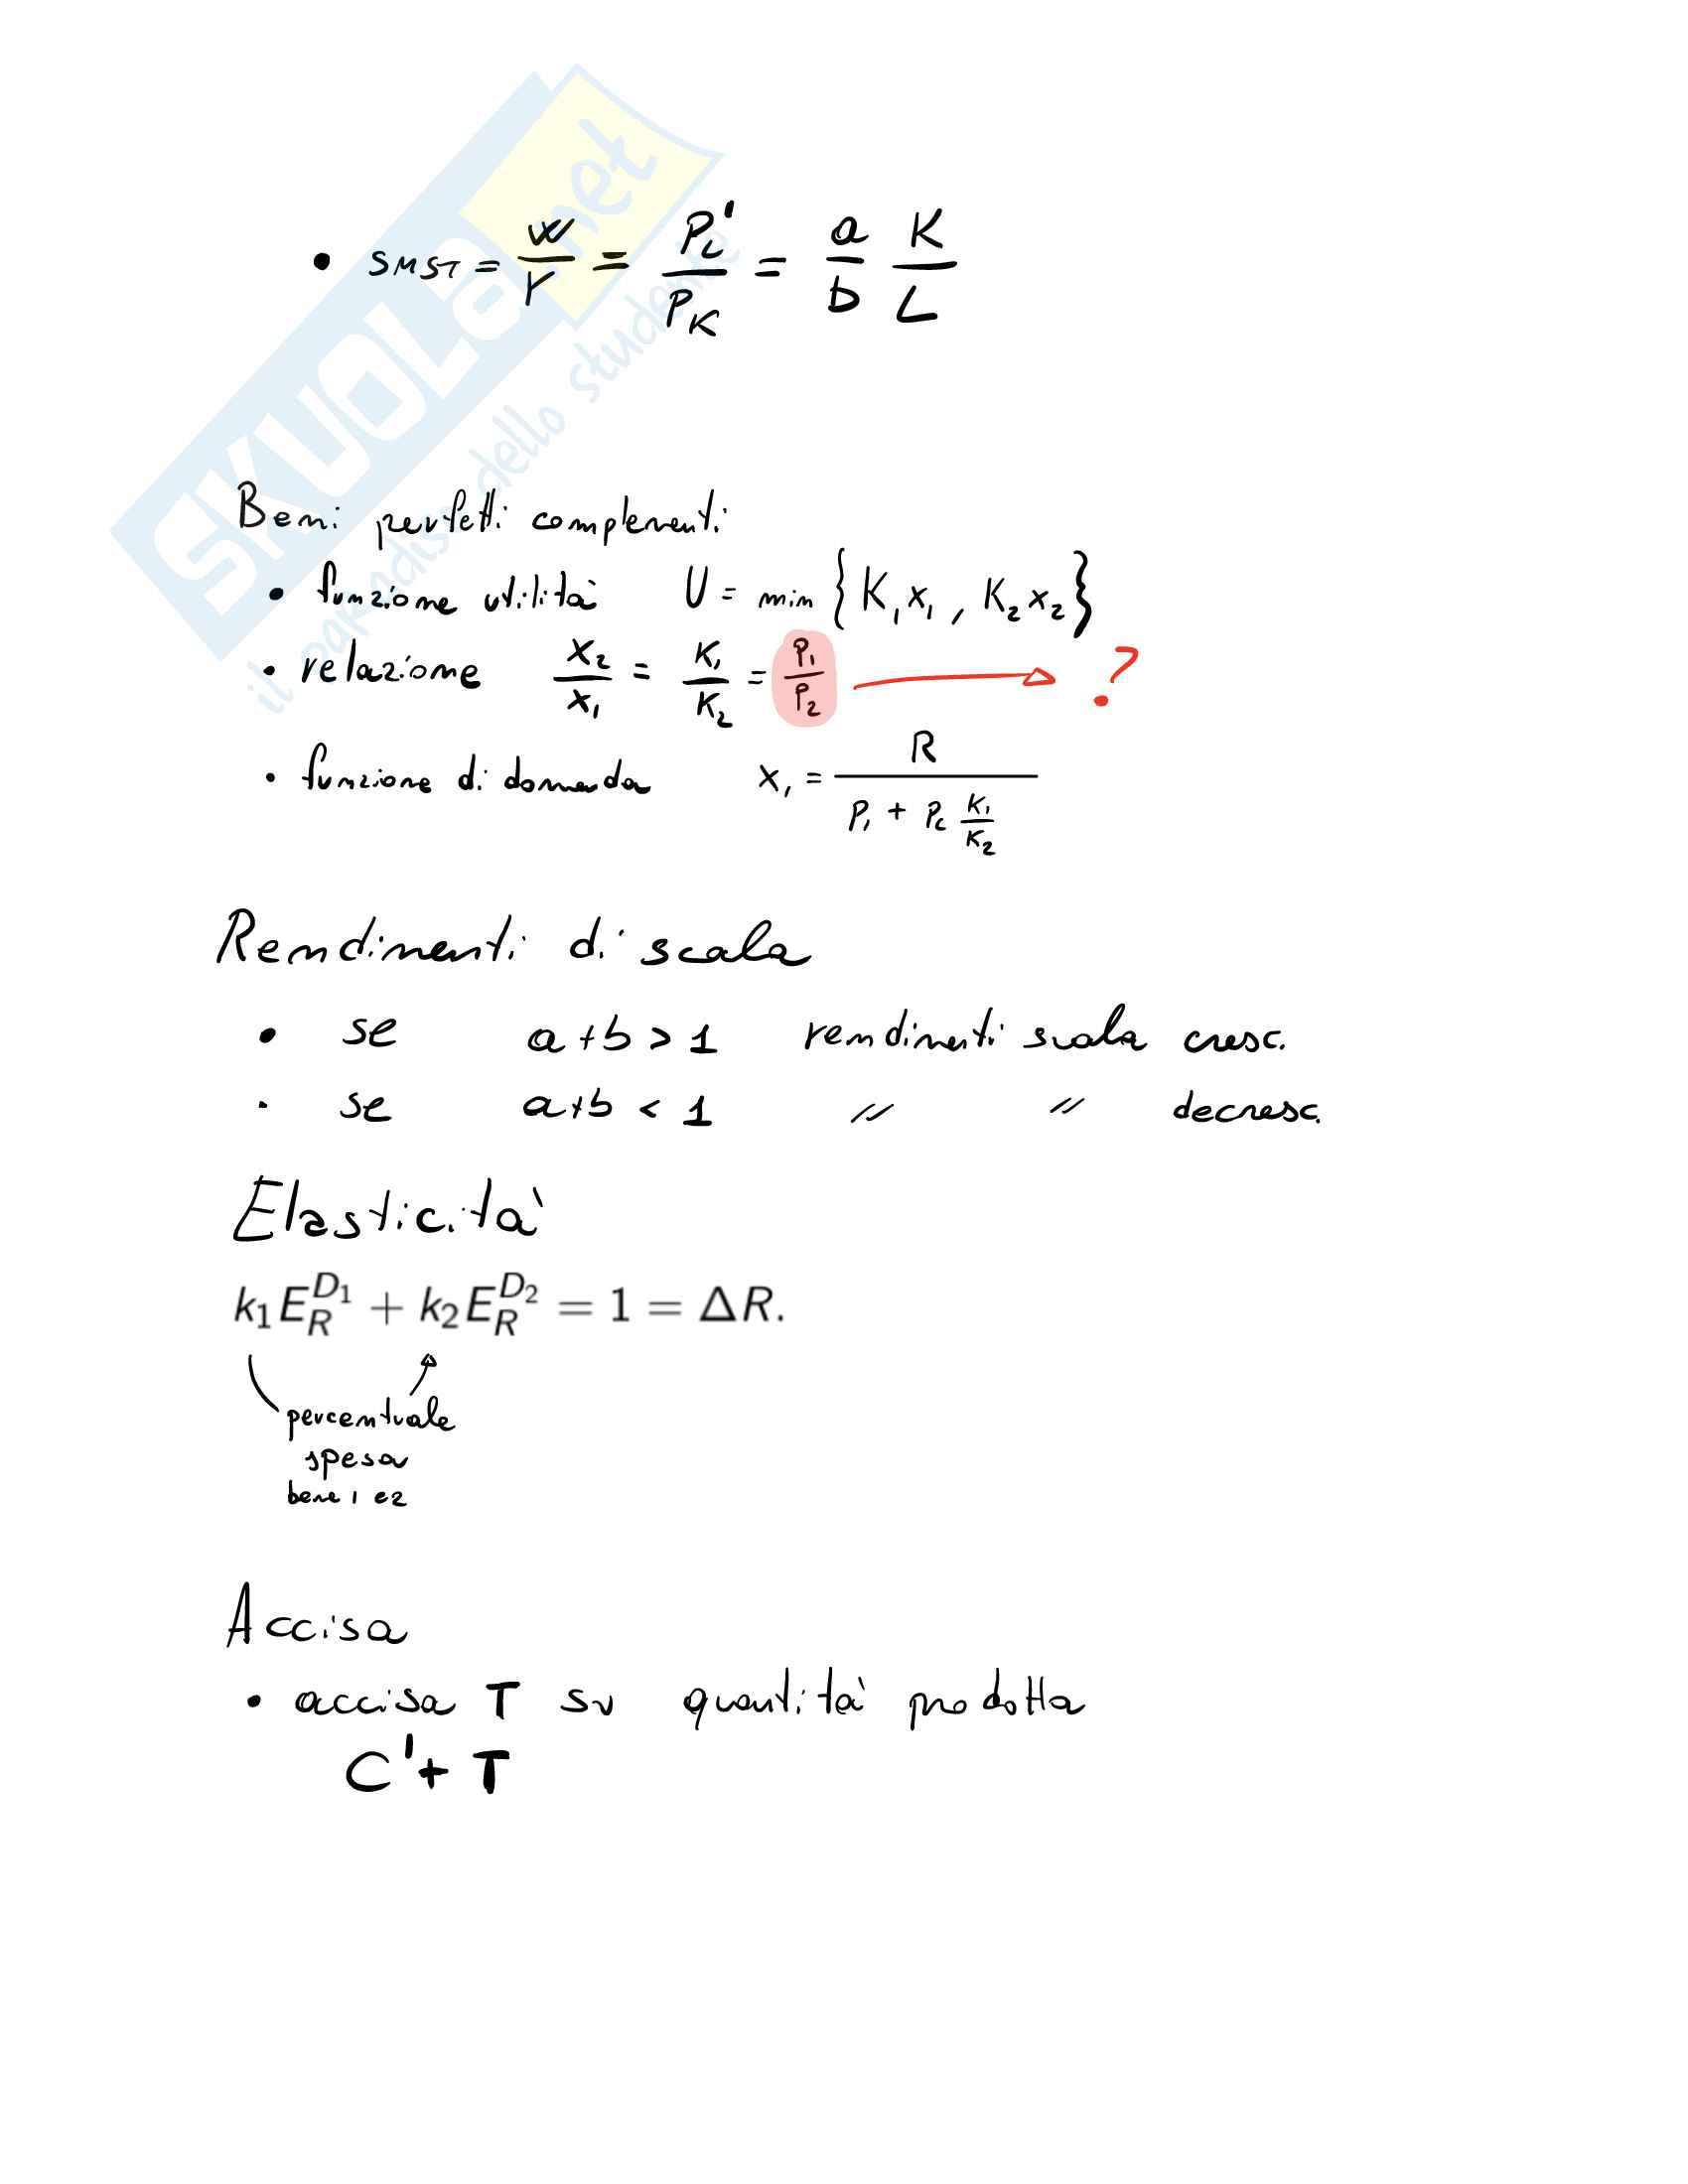 SKUOLa.net
il paradiso dello studente
• SMST = w/r = P'L/PK = a/b K/L
Beni perfetti complementi
• funzione utilità U = min {K₁x₁, K₂x₂}
• relazione x₂/x₁ = K₁/K₂ = P₁/P₂ → ?
• funzione di domanda x₁ = R/(P₁ + P₂ K₁/K₂)
Rendimenti di scala
• se a+b > 1 rendimenti scala cresc.
• se a+b < 1 // // decresc.
Elasticità
k₁E_R^{D₁} + k₂E_R^{D₂} = 1 = ΔR.
percentuale
spesa
bene 1 e 2
Accisa
• accisa T su quantità prodotta
C' + T